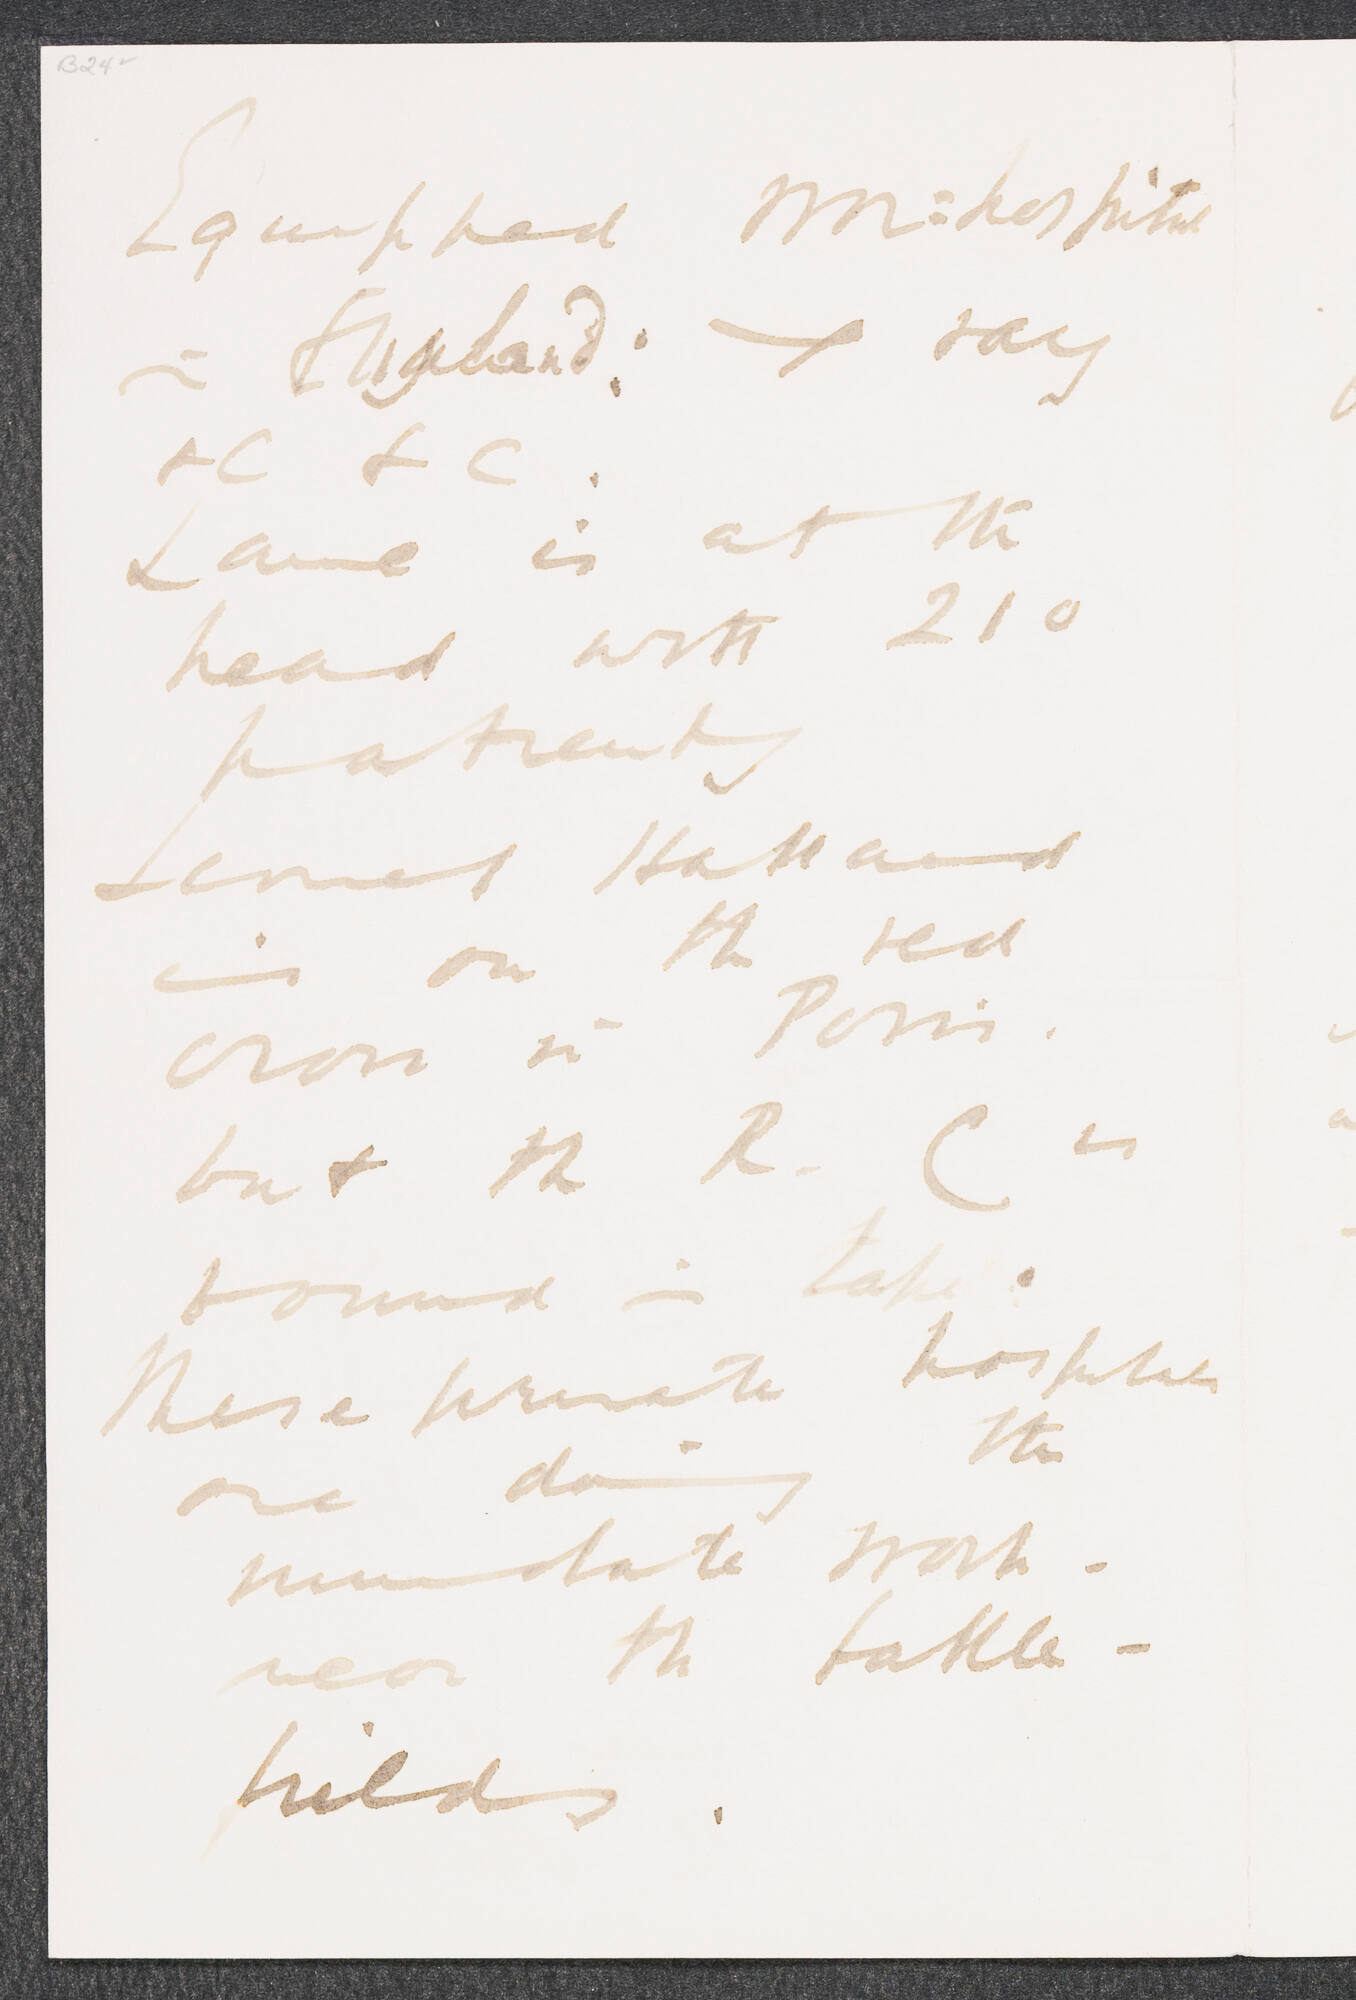 B24v
Equipped War=hospital
in England: I say
&C &C.
Lane is at the
head with 210
patients
Lionel Holland
is on the red
cross in Paris.
but the R. C is
bound in tape:
These private hospitals
are doing the
immediate work -
near the battle-
fields.